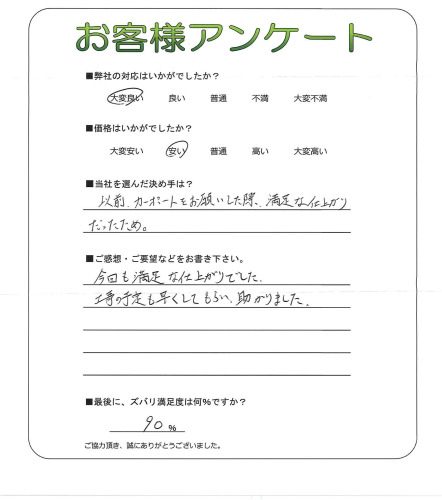 お客様アンケート
■弊社の対応はいかがでしたか？
大変良い 良い 普通 不満 大変不満
■価格はいかがでしたか？
大変安い 安い 普通 高い 大変高い
■当社を選んだ決め手は？
以前、カーポートをお願いした際、満足な仕上がり
だったため。
■ご感想・ご要望などをお書き下さい。
今回も満足な仕上がりでした。
工事の予定も早くしてもらい、助かりました。
■最後に、ズバリ満足度は何%ですか？
90 %
ご協力頂き、誠にありがとうございました。